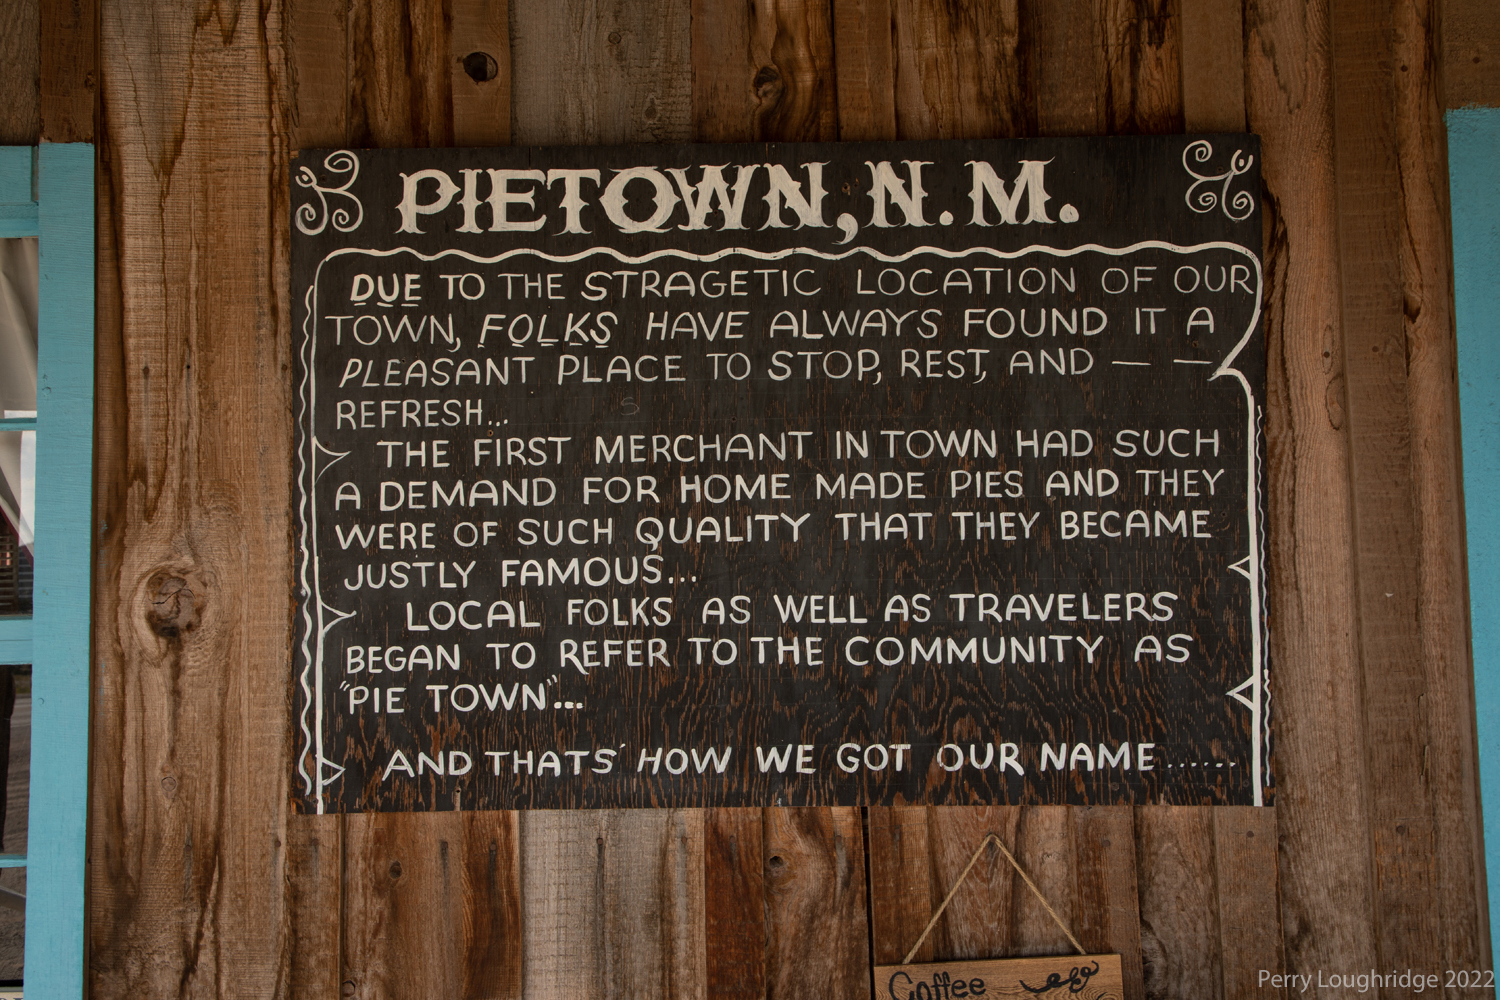 PIETOWN, N.M.
DUE TO THE STRAGETIC LOCATION OF OUR
TOWN, FOLKS HAVE ALWAYS FOUND IT A
PLEASANT PLACE TO STOP, REST, AND — —
REFRESH...
THE FIRST MERCHANT IN TOWN HAD SUCH
A DEMAND FOR HOME MADE PIES AND THEY
WERE OF SUCH QUALITY THAT THEY BECAME
JUSTLY FAMOUS...
LOCAL FOLKS AS WELL AS TRAVELERS
BEGAN TO REFER TO THE COMMUNITY AS
"PIE TOWN"...
AND THATS' HOW WE GOT OUR NAME......
Coffee
Perry Loughridge 2022